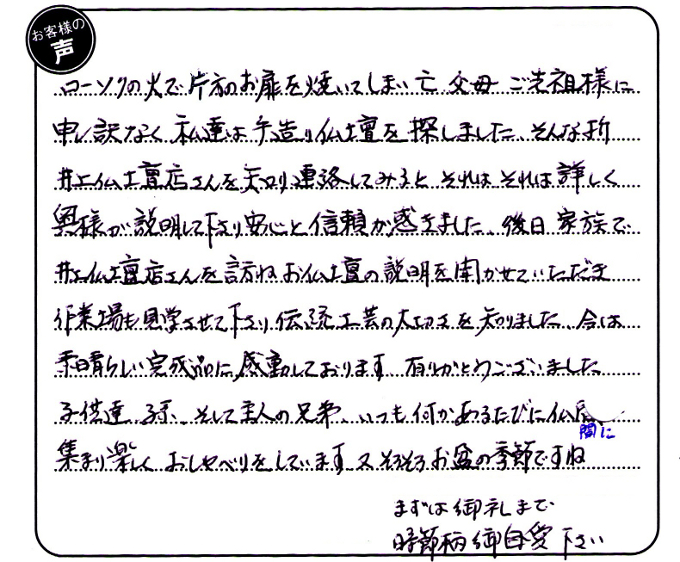 お客様の
声
ローソクの火で片方のお扉を焼いてしまい亡父母ご先祖様に
申し訳なく私達は手造り仏壇を探しました、そんな折
井上仏壇店さんを知り連絡してみると それは それは 詳しく
奥様が説明して下さり安心と信頼が感きました、後日 家族で
井上仏壇店さんを訪ねお仏壇の説明を聞かせていただき
作業場も見学させて下さり伝統工芸の大切さを知りました、今は
素晴らしい完成品に感動しております 有りがとうございました
子供達、孫、そして主人の兄弟、いつも何かあるたびに仏
間に
集まり楽しく おしゃべりをしています 又そろそろお盆の季節ですね
まずは御礼まで
時節柄御自愛下さい